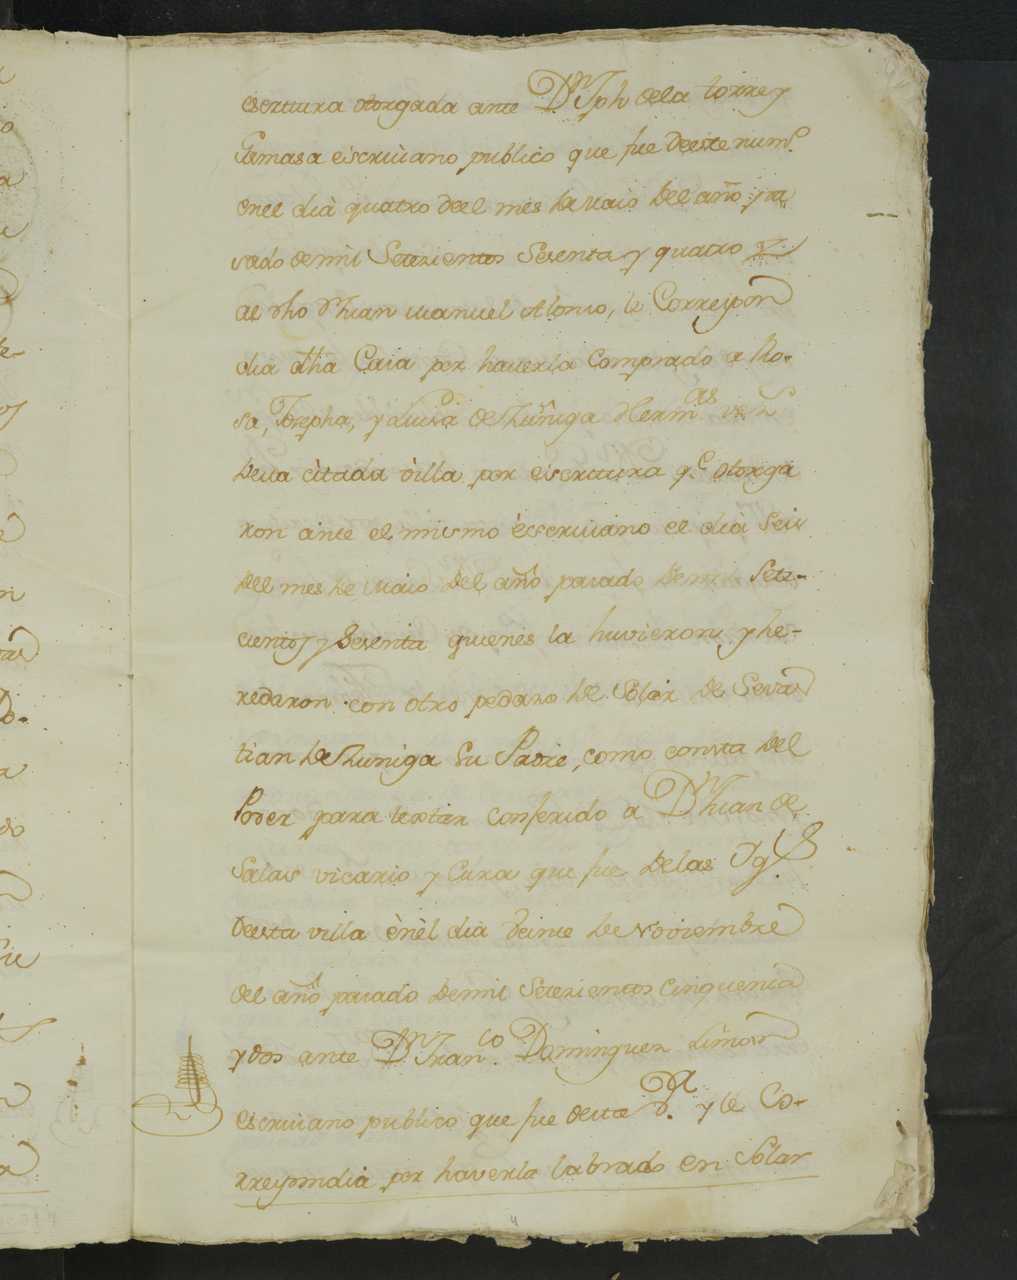 escritura otorgada ante Dn Jph dela torre y
Gamasa escriuano publico que fue deeste numo
enel dia quatro deel mes de Maio del año pa
sado demil Setezientos Sesenta y quatro y
al dho Juan Manuel Alonso, le Correspon
dia dha Casa por hauerla Comprado a Ro-
sa, Josepha, y Luisa de Zuñiga Hermas vezs
dela citada villa por escritura qe otorga
ron ante el mismo escriuano el dia seis
del mes de Maio del año pasado demil Sete-
cientos y Sesenta quienes la huvieron, y he-
redaron con otro pedazo de Solar de Sevas
tian de Zuñiga Su Padre, como consta del
Poder para testar conferido a Dn Juan de
Salas vicario y Cura que fue delas Igs
deesta villa enel dia veinte de Noviembre
del año pasado demil Setezientos cinquenta
y dos ante Dn Franco Dominguez
escriuano publico que fue desta va y le Co-
rrespondia por hauerla labrado en Solar